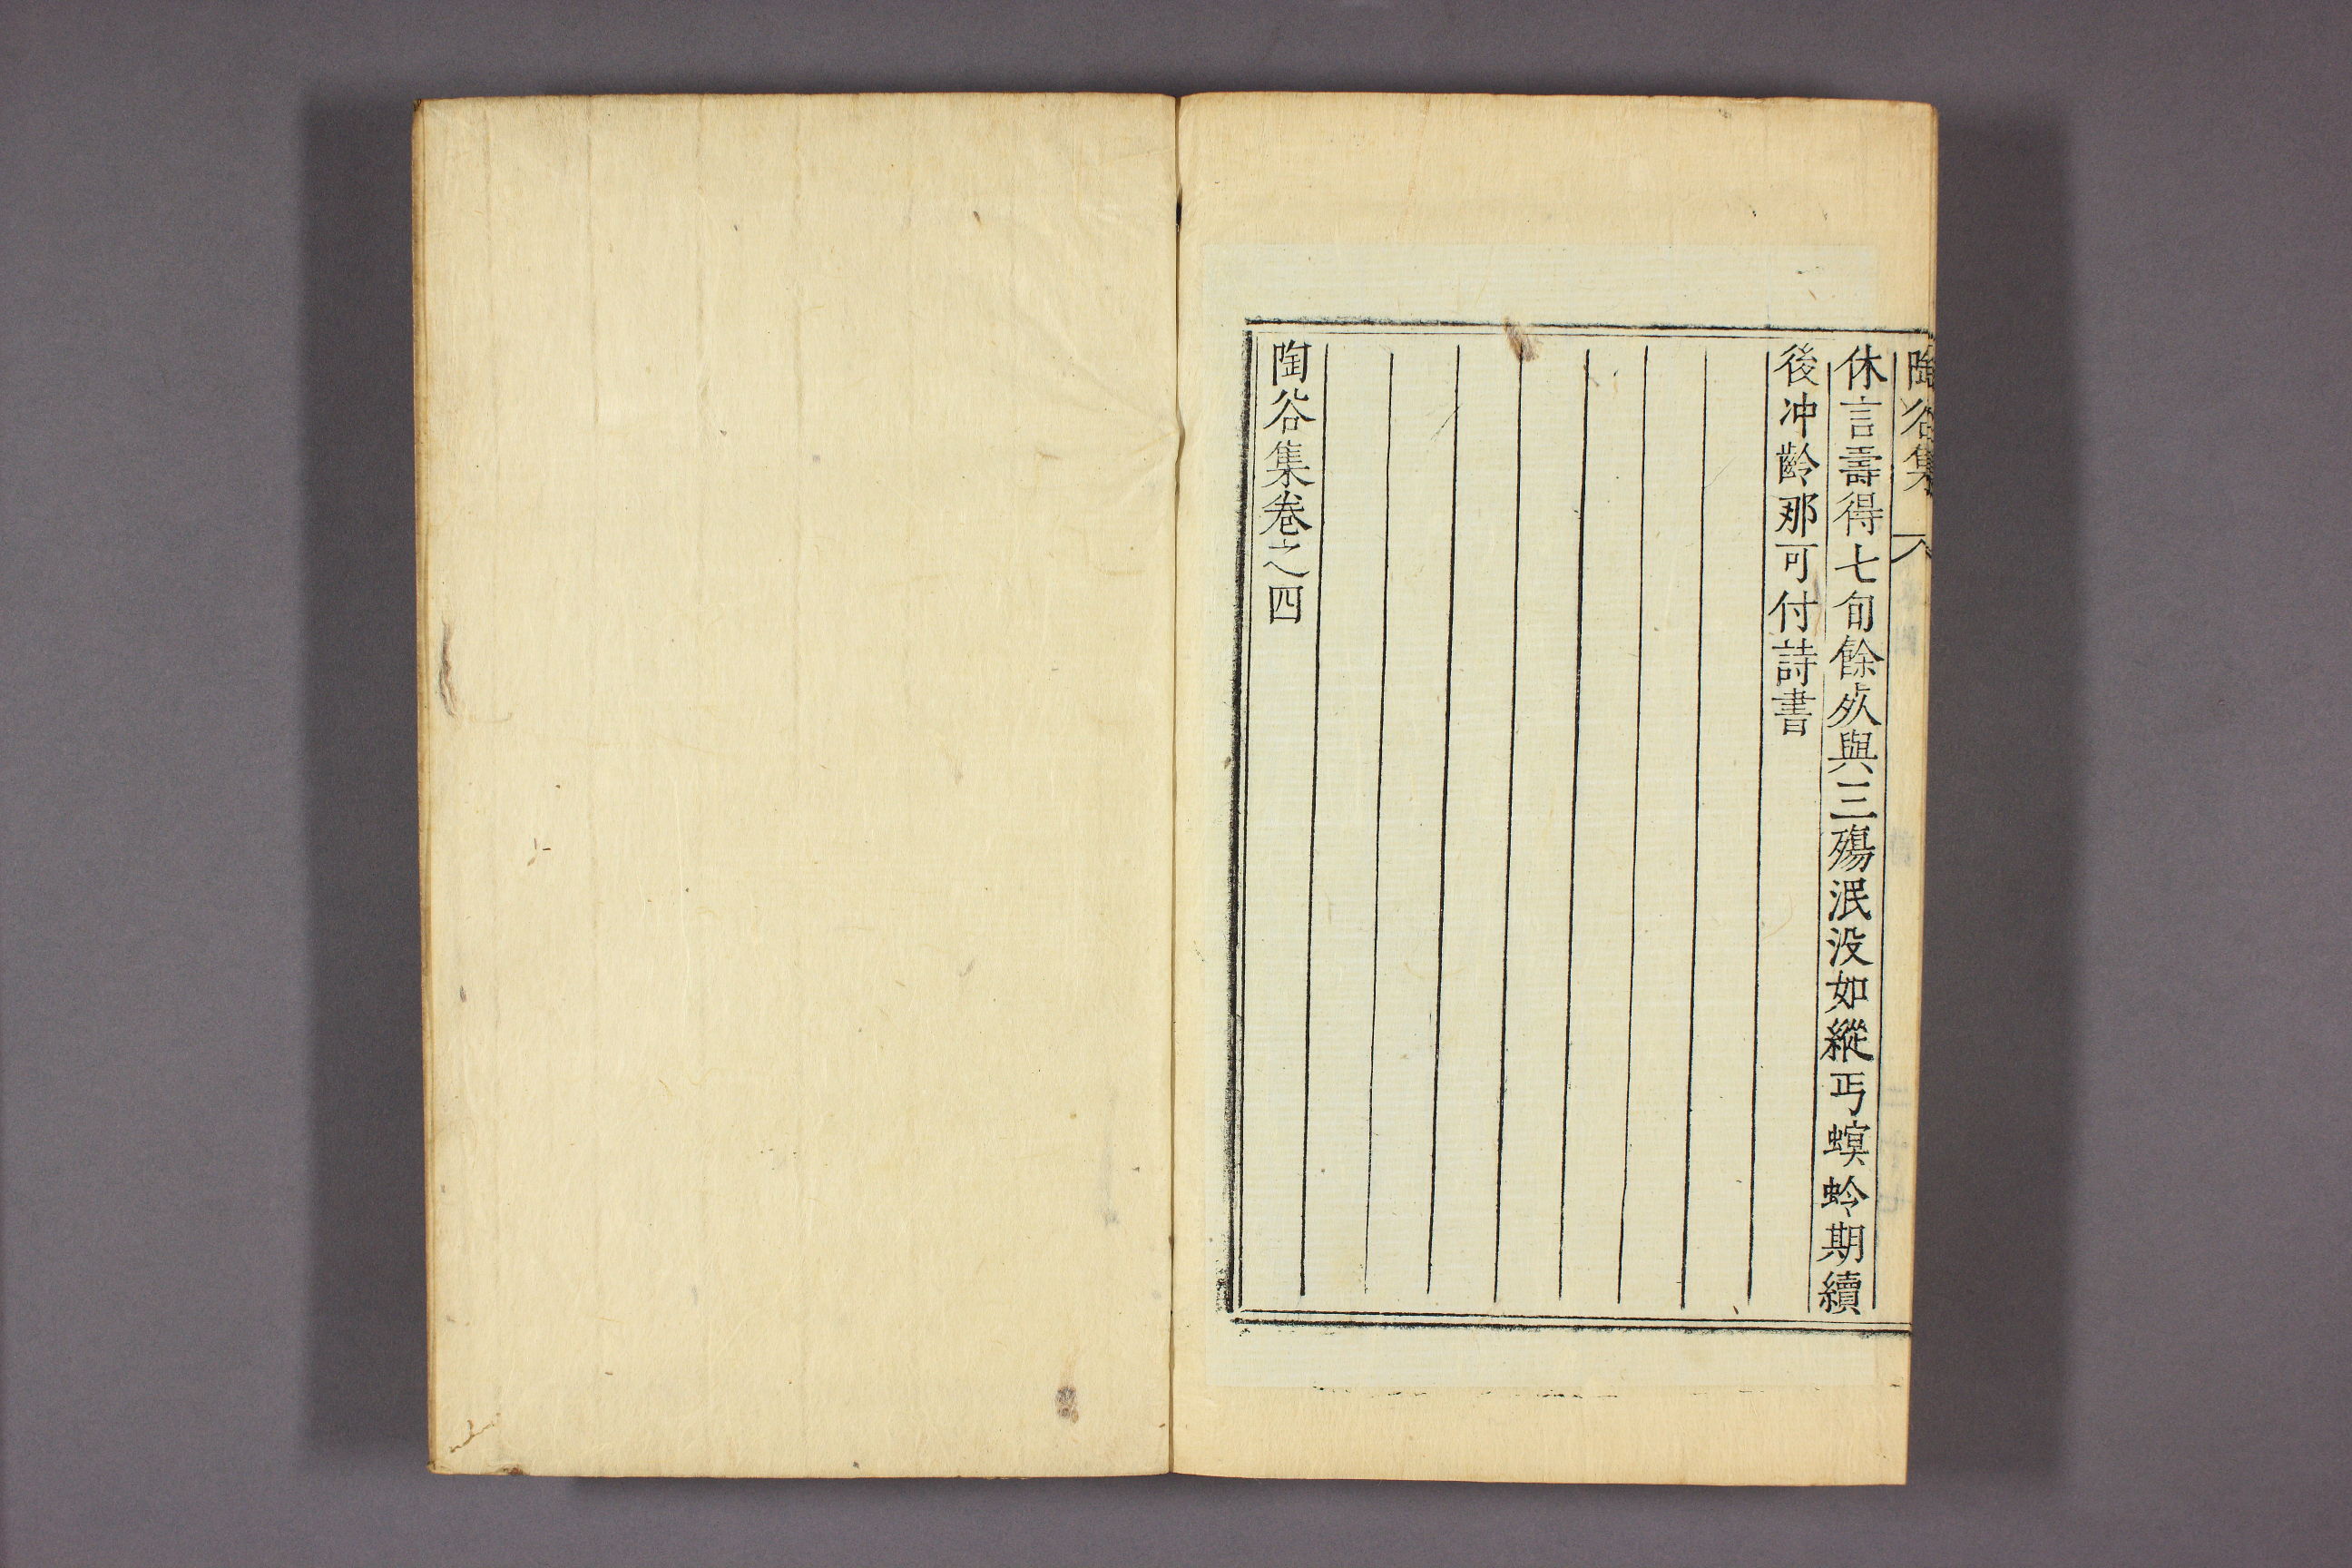 陶谷集
休言壽得七旬餘㱠與三殤泯没如縱丐螟蛉期續
後冲齡那可付詩書
陶谷集卷之四